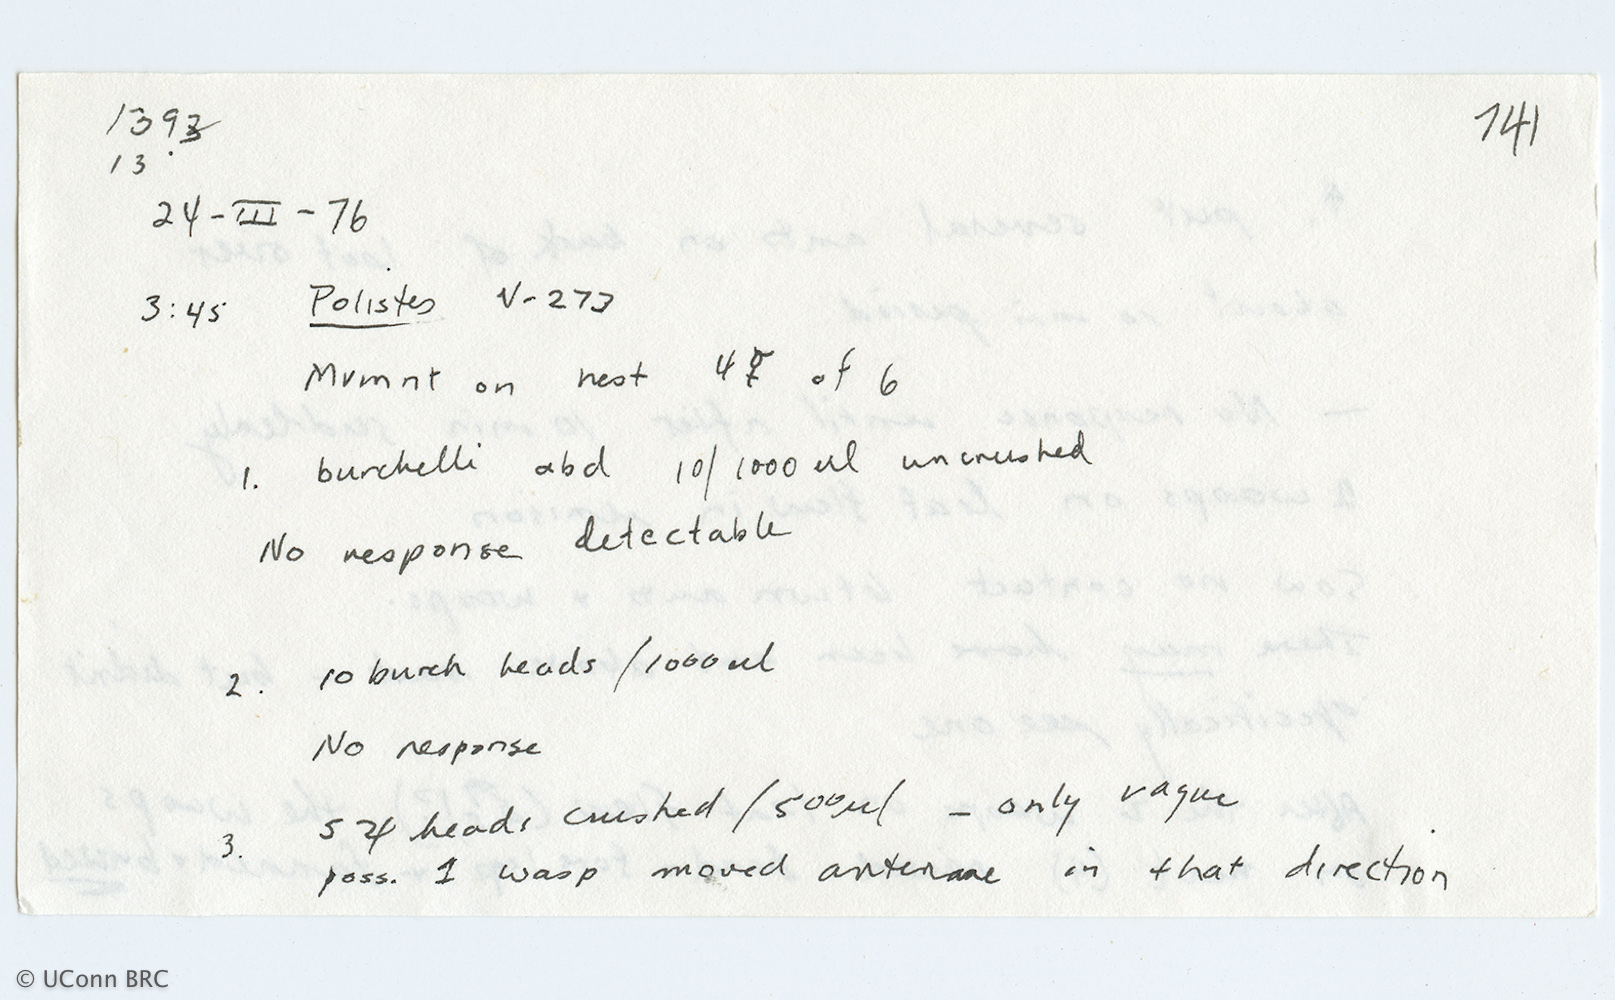 1393
141
13
24-III-76
3:45 Polistes V-273
Mvmnt on nest 4☿ of 6
1. burchelli abd 10/1000 ul uncrushed
No response detectable
2. 10 burch heads /1000 ul
No response
3. 5 ♃ heads crushed /500 ul - only vague
poss. 1 wasp moved antennae in that direction
© UConn BRC